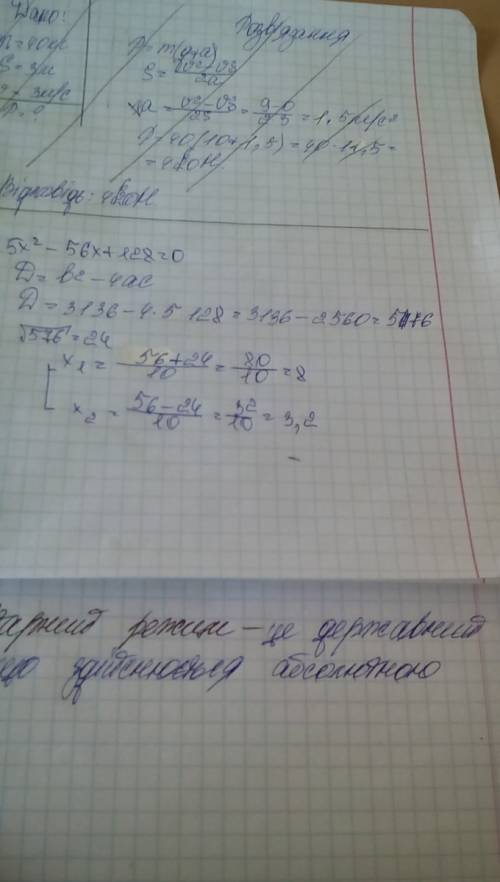 Дано:
Розв'язання
S = 3м
P = m(g+a)
S = v² - v₀² / 2a
a = v² - v₀² / 2S = 9-0 / 2·3 = 1,5 м/с²
P = 40(10+1,5) = 40·11,5 =
= 460Н
Відповідь: 460Н
5x² - 56x + 128 = 0
D = b² - 4ac
D = 3136 - 4·5·128 = 3136 - 2560 = 576
√576 = 24
x₁ = 56+24 / 10 = 80 / 10 = 8
x₂ = 56-24 / 10 = 32 / 10 = 3,2
режим – це державний
здійснюється абсолютною